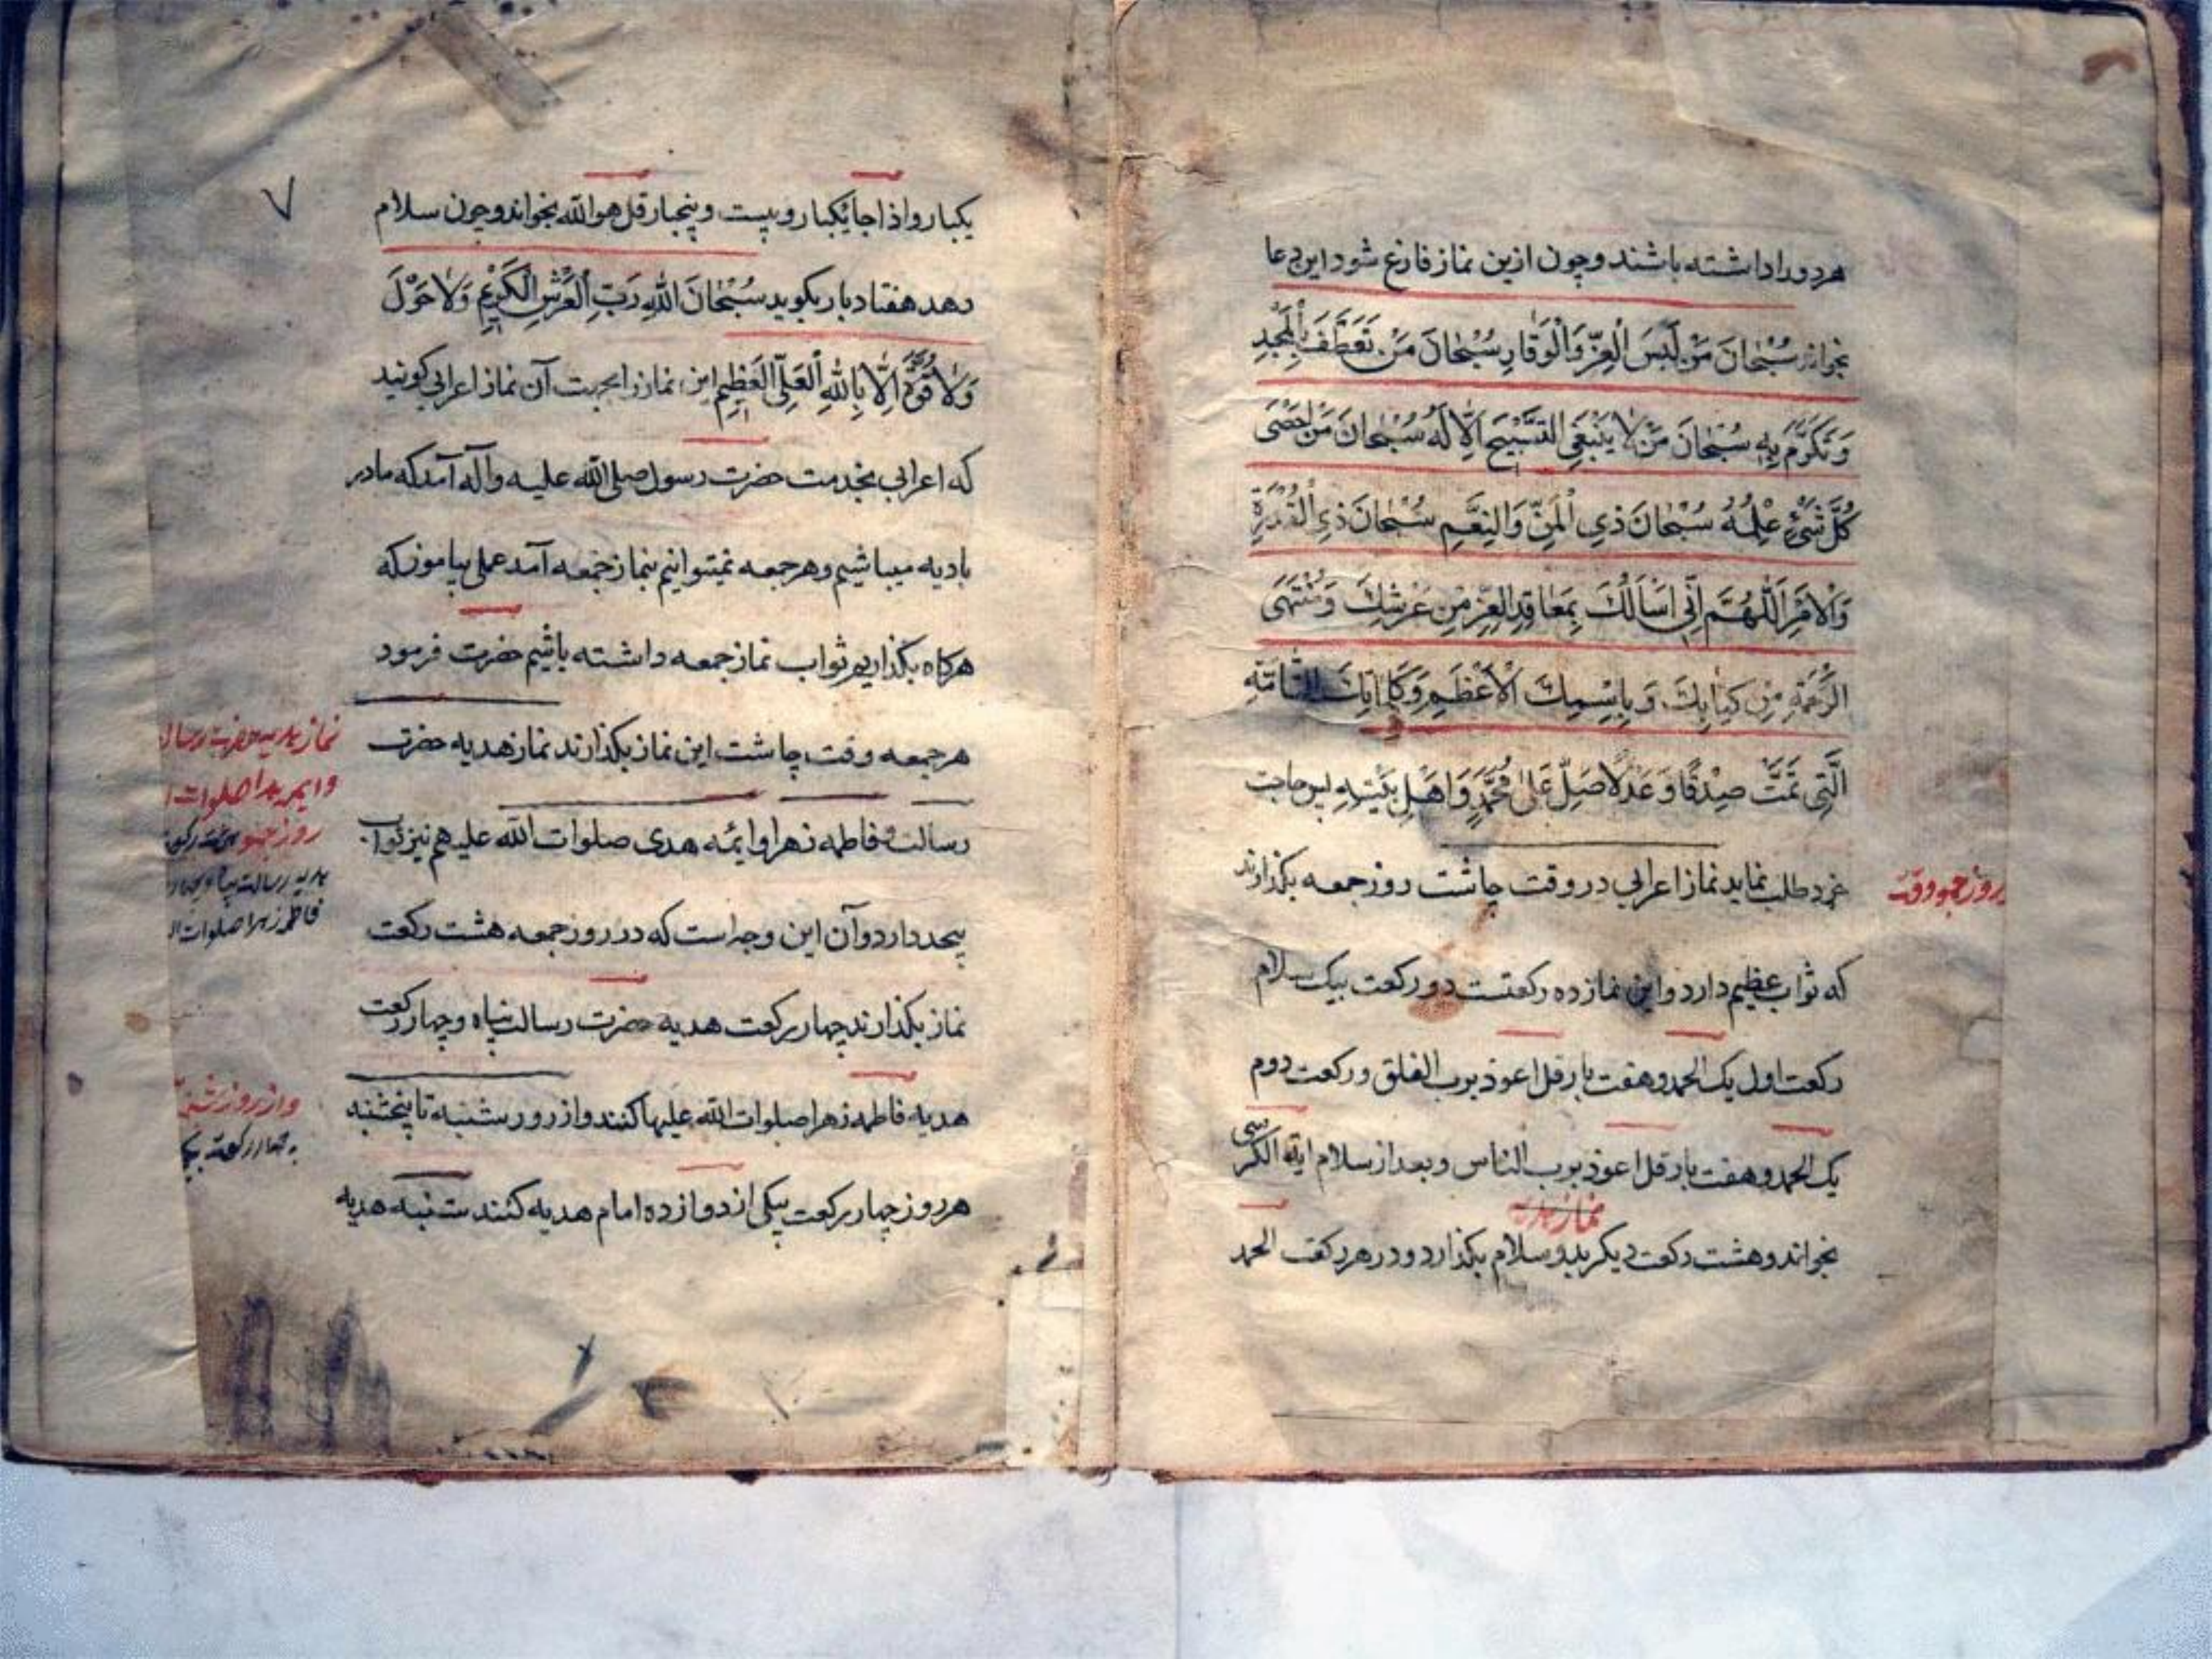 هر دو را داشته باشند و چون ازین نماز فارغ شود این دعا
بخواند سُبْحانَ مَنْ لَبِسَ الْعِزَّ وَالْوَقارِ سُبْحانَ مَنْ تَعَطَّفَ بِالْمَجْدِ
وَتَكَرَّمَ بِهِ سُبْحانَ مَنْ لا يَنْبَغِي التَّسْبِيحَ اِلّا لَهُ سُبْحانَ مَنْ اَحْصَى
كُلَّ شَيْءٍ عِلْمُهُ سُبْحانَ ذِي الْمَنِّ وَالنِعَّمِ سُبْحانَ ذِي الْقُدْرَةِ
وَالْاَمْرِ اَللّٰهُمَّ اِنّي اَسْاَلُكَ بِمَعاقِدِ الْعِزِّ مِنْ عَرْشِكَ وَمُنْتَهَى
الرَّحْمَةِ مِنْ كِتابِكَ وَبِاِسْمِكَ الْاَعْظَمِ وَكَلِماتِكَ التّامَّةِ
الَّتِي تَمَّتْ صِدْقًا وَعَدْلًا صَلِّ عَلىٰ مُحَمَّدٍ وَاَهْلِ بَيْتِهِ پس حاجت
خود طلب نماید نماز اعرابی در وقت چاشت روز جمعه بکذارند
روز جمعه وقت
که ثواب عظیم دارد و این نماز ده رکعتست دو رکعت بیک سلام
رکعت اول یک الحمد و هفت بار قل اعوذ برب الفلق و رکعت دوم
یک الحمد و هفت بار قل اعوذ برب الناس و بعد از سلام ایة الکرسی
نماز هدیه
بخواند و هشت رکعت دیکر بدو سلام بکذارد و در هر رکعت الحمد
٧
یکبار و اذا جا یکبار و بیست و پنجبار قل هو الله بخواند و چون سلام
دهد هفتاد بار بکوید سُبْحانَ اللهِ رَبِّ الْعَرْشِ الْكَرِيمِ وَلا حَوْلَ
وَلا قُوَّةَ اِلّا بِاللهِ الْعَلِيِّ الْعَظِيمِ این نماز را بجهت آن نماز اعرابی کویند
که اعرابی بخدمت حضرت رسول صلی الله علیه وآله آمد که ما در
بادیه میباشیم و هر جمعه نمیتوانیم بنماز جمعه آمد عملی بیاموز که
هرکاه بکذاریم ثواب نماز جمعه داشته باشیم حضرت فرمود
هر جمعه وقت چاشت این نماز بکذارند نماز هدیه حضرت
رسالت و فاطمه زهرا و ایمٔه هدی صلوات الله علیهم نیز ثواب
بیحد دارد و آن این وجه است که در روز جمعه هشت رکعت
نماز بکذارند چهار رکعت هدیه حضرت رسالت پناه و چهار رکعت
هدیه فاطمه زهرا صلوات الله علیها کنند و از روز شنبه تا پنجشنبه
هر روز چهار رکعت بیکی از دوازده امام هدیه کنند شنبه هدیه
نماز هدیه حضرت رسال
صلوات
روز جمعه
هدیه رسالت پناه
فاطمه زهرا صلوات
و از روز شنبه
چهار رکعت